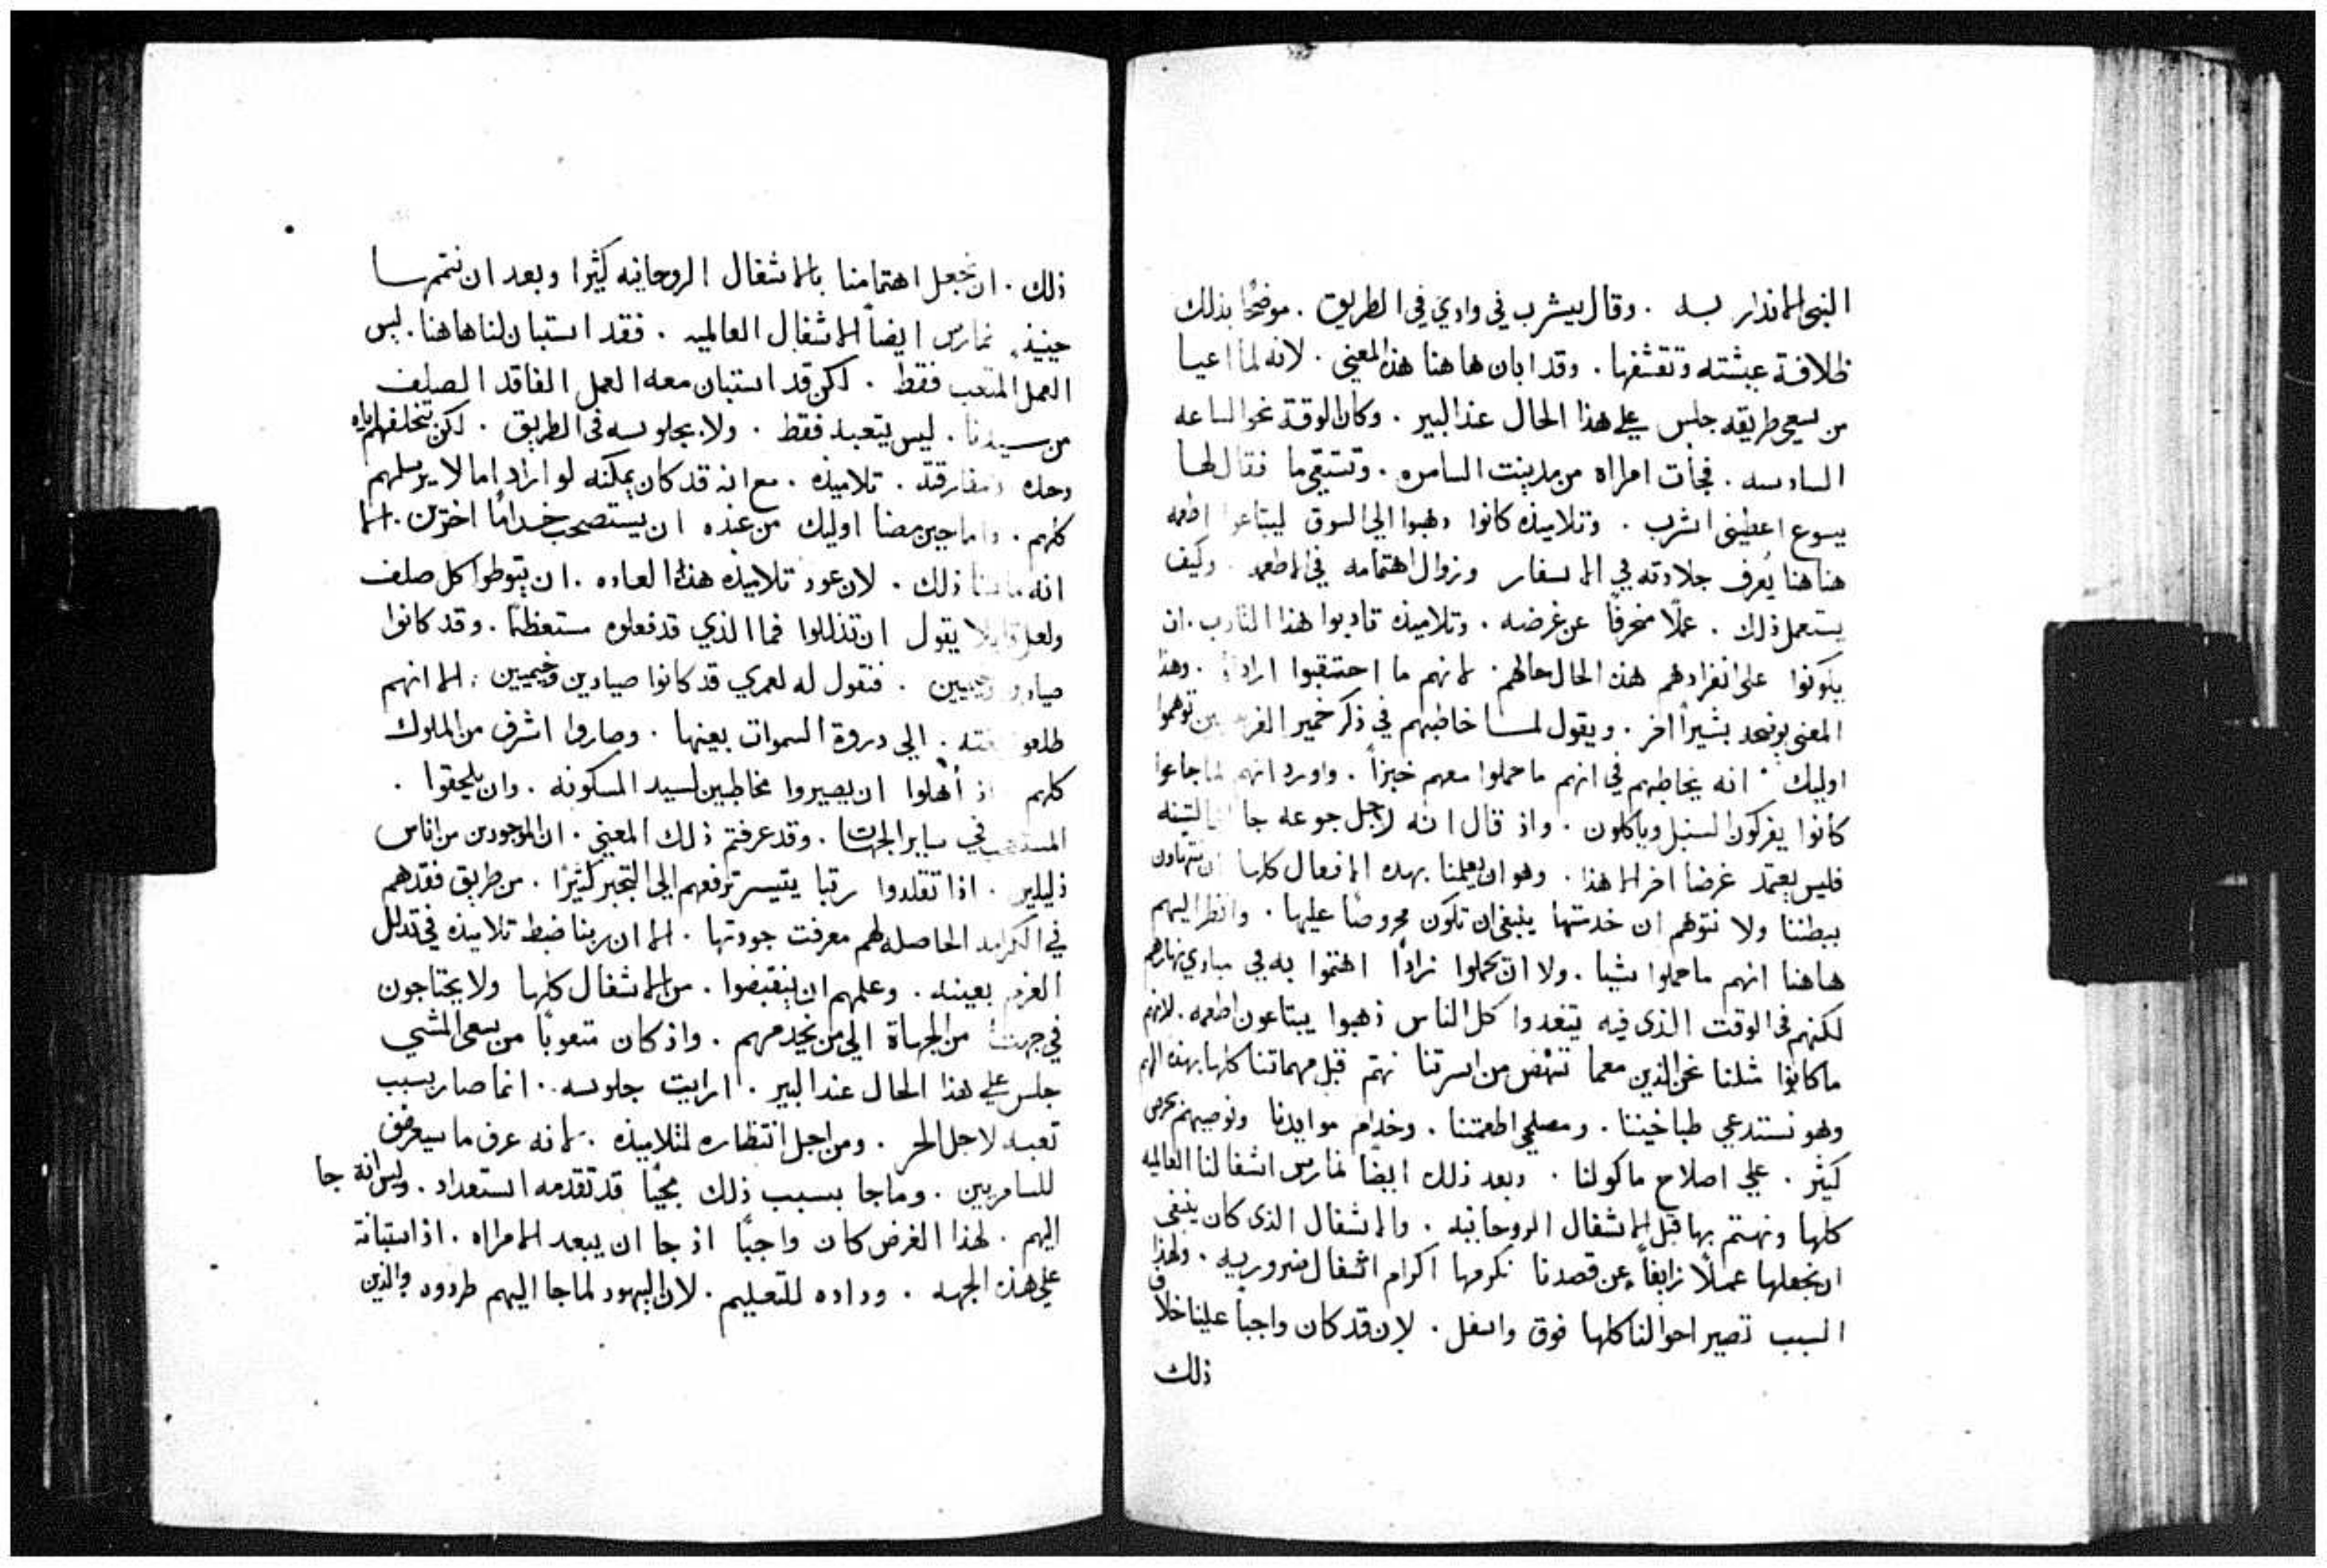 النبي الانذار به . وقال يشرب في وادي في الطريق . موضحًا بذلك
ظلافة عيشته وتقشفها . وقد ابان هاهنا هذا المعني . لانه لما اعيا
من سعي طريقه جلس علي هذا الحال عند البير . وكان الوقة نحو الساعه
السادسه . فجأت امراه من مدينت السامره . وتستقي ما فقال لها
يسوع اعطيني اشرب . وتلاميذه كانوا دهبوا الي السوق ليبتاعوا اطعمه
هنا هنا يُعرف جلادته في الاسفار وزوال اهتمامه في الاطعمه . وكيف
يستعمل ذلك . عملًا منحرفًا عن غرضه . وتلاميذه تادبوا هذا التادب . ان
يكونوا علي انفرادهم هذه الحال حالهم . لانهم ما احتقبوا ازاده . وهذا
المعني يوضحه بشيرًا اخر . ويقول لمسا خاطبهم في ذكر خمير الفريسيين توهموا
اوليك . انه يخاطبهم في انهم ما حملوا معهم خبزًا . واورد انهم لما جاعوا
كانوا يفركون السنبل وياكلون . واذ قال انه لاجل جوعه جا الي التينه
فليس يعتمد غرضا اخر الا هذا . وهو ان يعلمنا بهده الافعال كلها ان نتهاون
ببطننا ولا نتوهم ان خدمتها ينبغي ان تكون محروصًا عليها . وانظر اليهم
هاهنا انهم ما حملوا شيا . ولا ان يحملوا زادًا اهتموا به في مبادي نهارهم
لكنهم في الوقت الذي فيه يتغدوا كل الناس ذهبوا يبتاعون اطعمه . لانهم
ما كانوا مثلنا نحن الذين معما ننهض من اسرتنا نهتم قبل مهماتنا كلها بهذه المهم
وهو نستدعي طباخيننا . ومصلحي اطعمتنا . وخدام موايدنا ونوصيهم بحرص
كثير . علي اصلاح ماكولنا . وبعد ذلك ايضًا نمارس اشغالنا العالميه
كلها ونهتم بها قبل الاشغال الروحانيه . والاشغال الذي كان ينبغي
ان نجعلها عملًا زايغًا عن قصدنا نكرمها اكرام اشغال ضروريه . ولهذا
السبب تصير احوالنا كلها فوق واسفل . لان قد كان واجبا علينا خلاف
ذلك
ذلك . ان نجعل اهتمامنا بالاشغال الروحانيه كثيرا وبعد ان نتمها
حينيذٍ نمارس ايضاً الاشغال العالميه . فقد استبان لنا هاهنا . ليس
العمل المتعب فقط . لكن قد استبان معه العمل الفاقد الصلف
من سيدنا . ليس بتعبه فقط . ولا بجلوسه في الطريق . لكن بتخلفهم اياه
وحده ومفارقته . تلاميذه . مع انه قد كان يمكنه لو اراد اما لا يرسلهم
كلهم . واما حين مضا اوليك من عنده ان يستصحب خدامًا اخرين . الا
انه ما شا ذلك . لان عود تلاميذه هذه العاده . ان يتوطوا كل صلف
ولعل قايلا يقول ان تذللوا فما الذي قد فعلوه مستعظمًا . وقد كانوا
صيادين وخيميين . فنقول له لعمري قد كانوا صيادين وخيميين . الا انهم
طلعوا بغته . الي دروة السموات بعينها . وصاروا اشرف من الملوك
كلهم اذ أُهلوا ان يصيروا مخاطبين لسيد المسكونه . وان يلحقوا .
في ساير الجهات . وقد عرفتم ذلك المعني . ان الموجودين من اناس
ذليلين . اذا تقلدوا رتبا يتيسر ترفعهم الي التجبر كثيرًا . من طريق فقدهم
في الكرامه الحاصله لهم معرفت جودتها . الا ان ربنا ضبط تلاميذه في تدلل
العزم بعينه . وعلمهم ان ينقبضوا . من الاشغال كلها ولا يحتاجون
في جهت من الجهاة الي من يخدمهم . واذ كان متعوبًا من سعي المشي
جلس علي هذا الحال عند البير . ارايت جلوسه . انما صار بسبب
تعبه لاجل الحر . ومن اجل انتظاره لتلاميذه . لانه عرف ما سيعرض
للسامريين . وما جا بسبب ذلك مجيًا قد تقدمه استعداد . وليس انه جا
اليهم . لهذا الغرض كان واجبًا اذ جا ان يبعد الامراه . اذ استبانة
علي هذه الجهه . وداده للتعليم . لان اليهود لما جا اليهم طردوه والذين